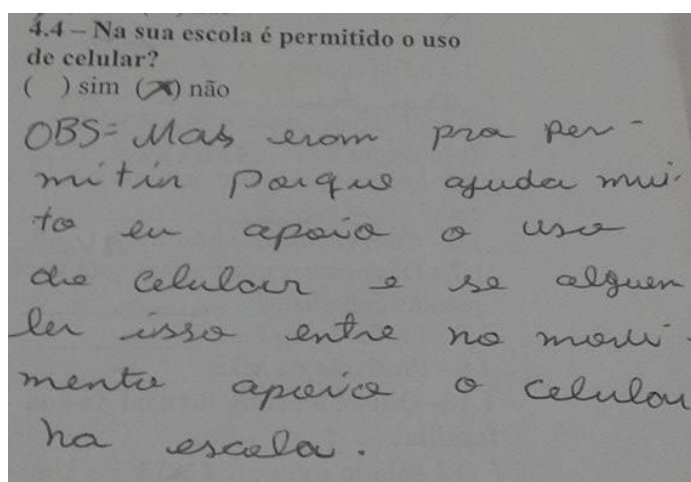 4.4 – Na sua escola é permitido o uso
de celular?
( ) sim (x) não
OBS= Mas erom pra per-
mitir porque ajuda mui-
to eu apoio o uso
de celular e se alguen
ler isso entre no movi-
mento apoio o celular
na escola.